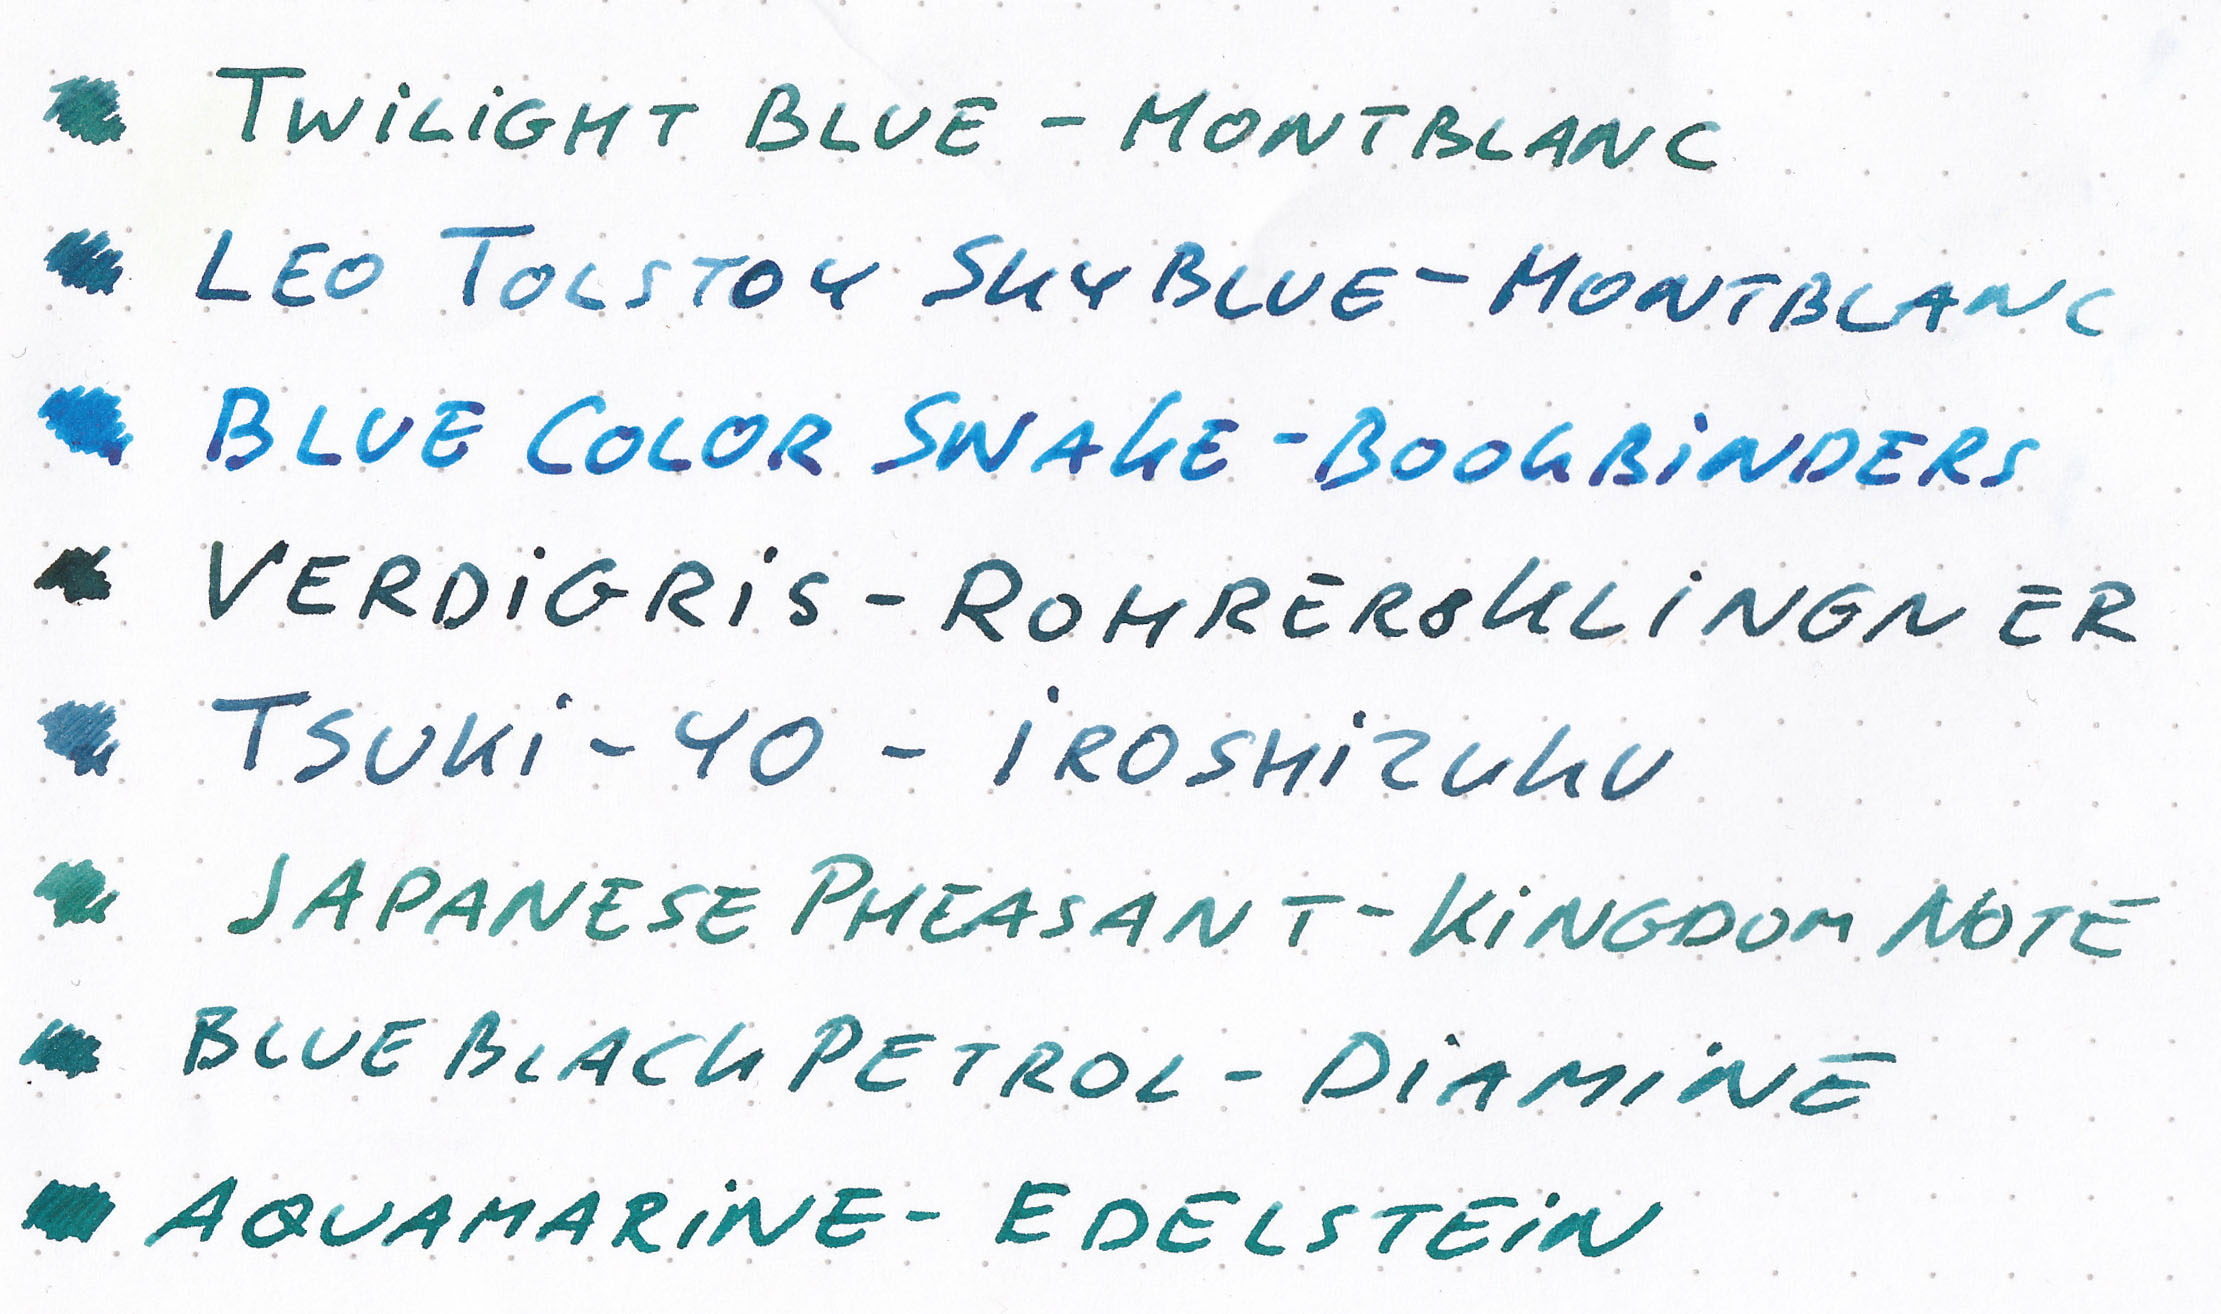 TWiLiGHT BLUE - MONTBLANC
LEO TOLSTOY SKY BLUE - MONTBLANC
BLUE COLOR SNAKE - BOOKBiNDERS
VERDiGRiS - ROHRER&KLiNGNER
TSUKi - YO - iROSHiZUKU
JAPANESE PHEASANT - KiNGDOM NOTE
BLUE BLACK PETROL - DiAMiNE
AQUAMARiNE - EDELSTEiN